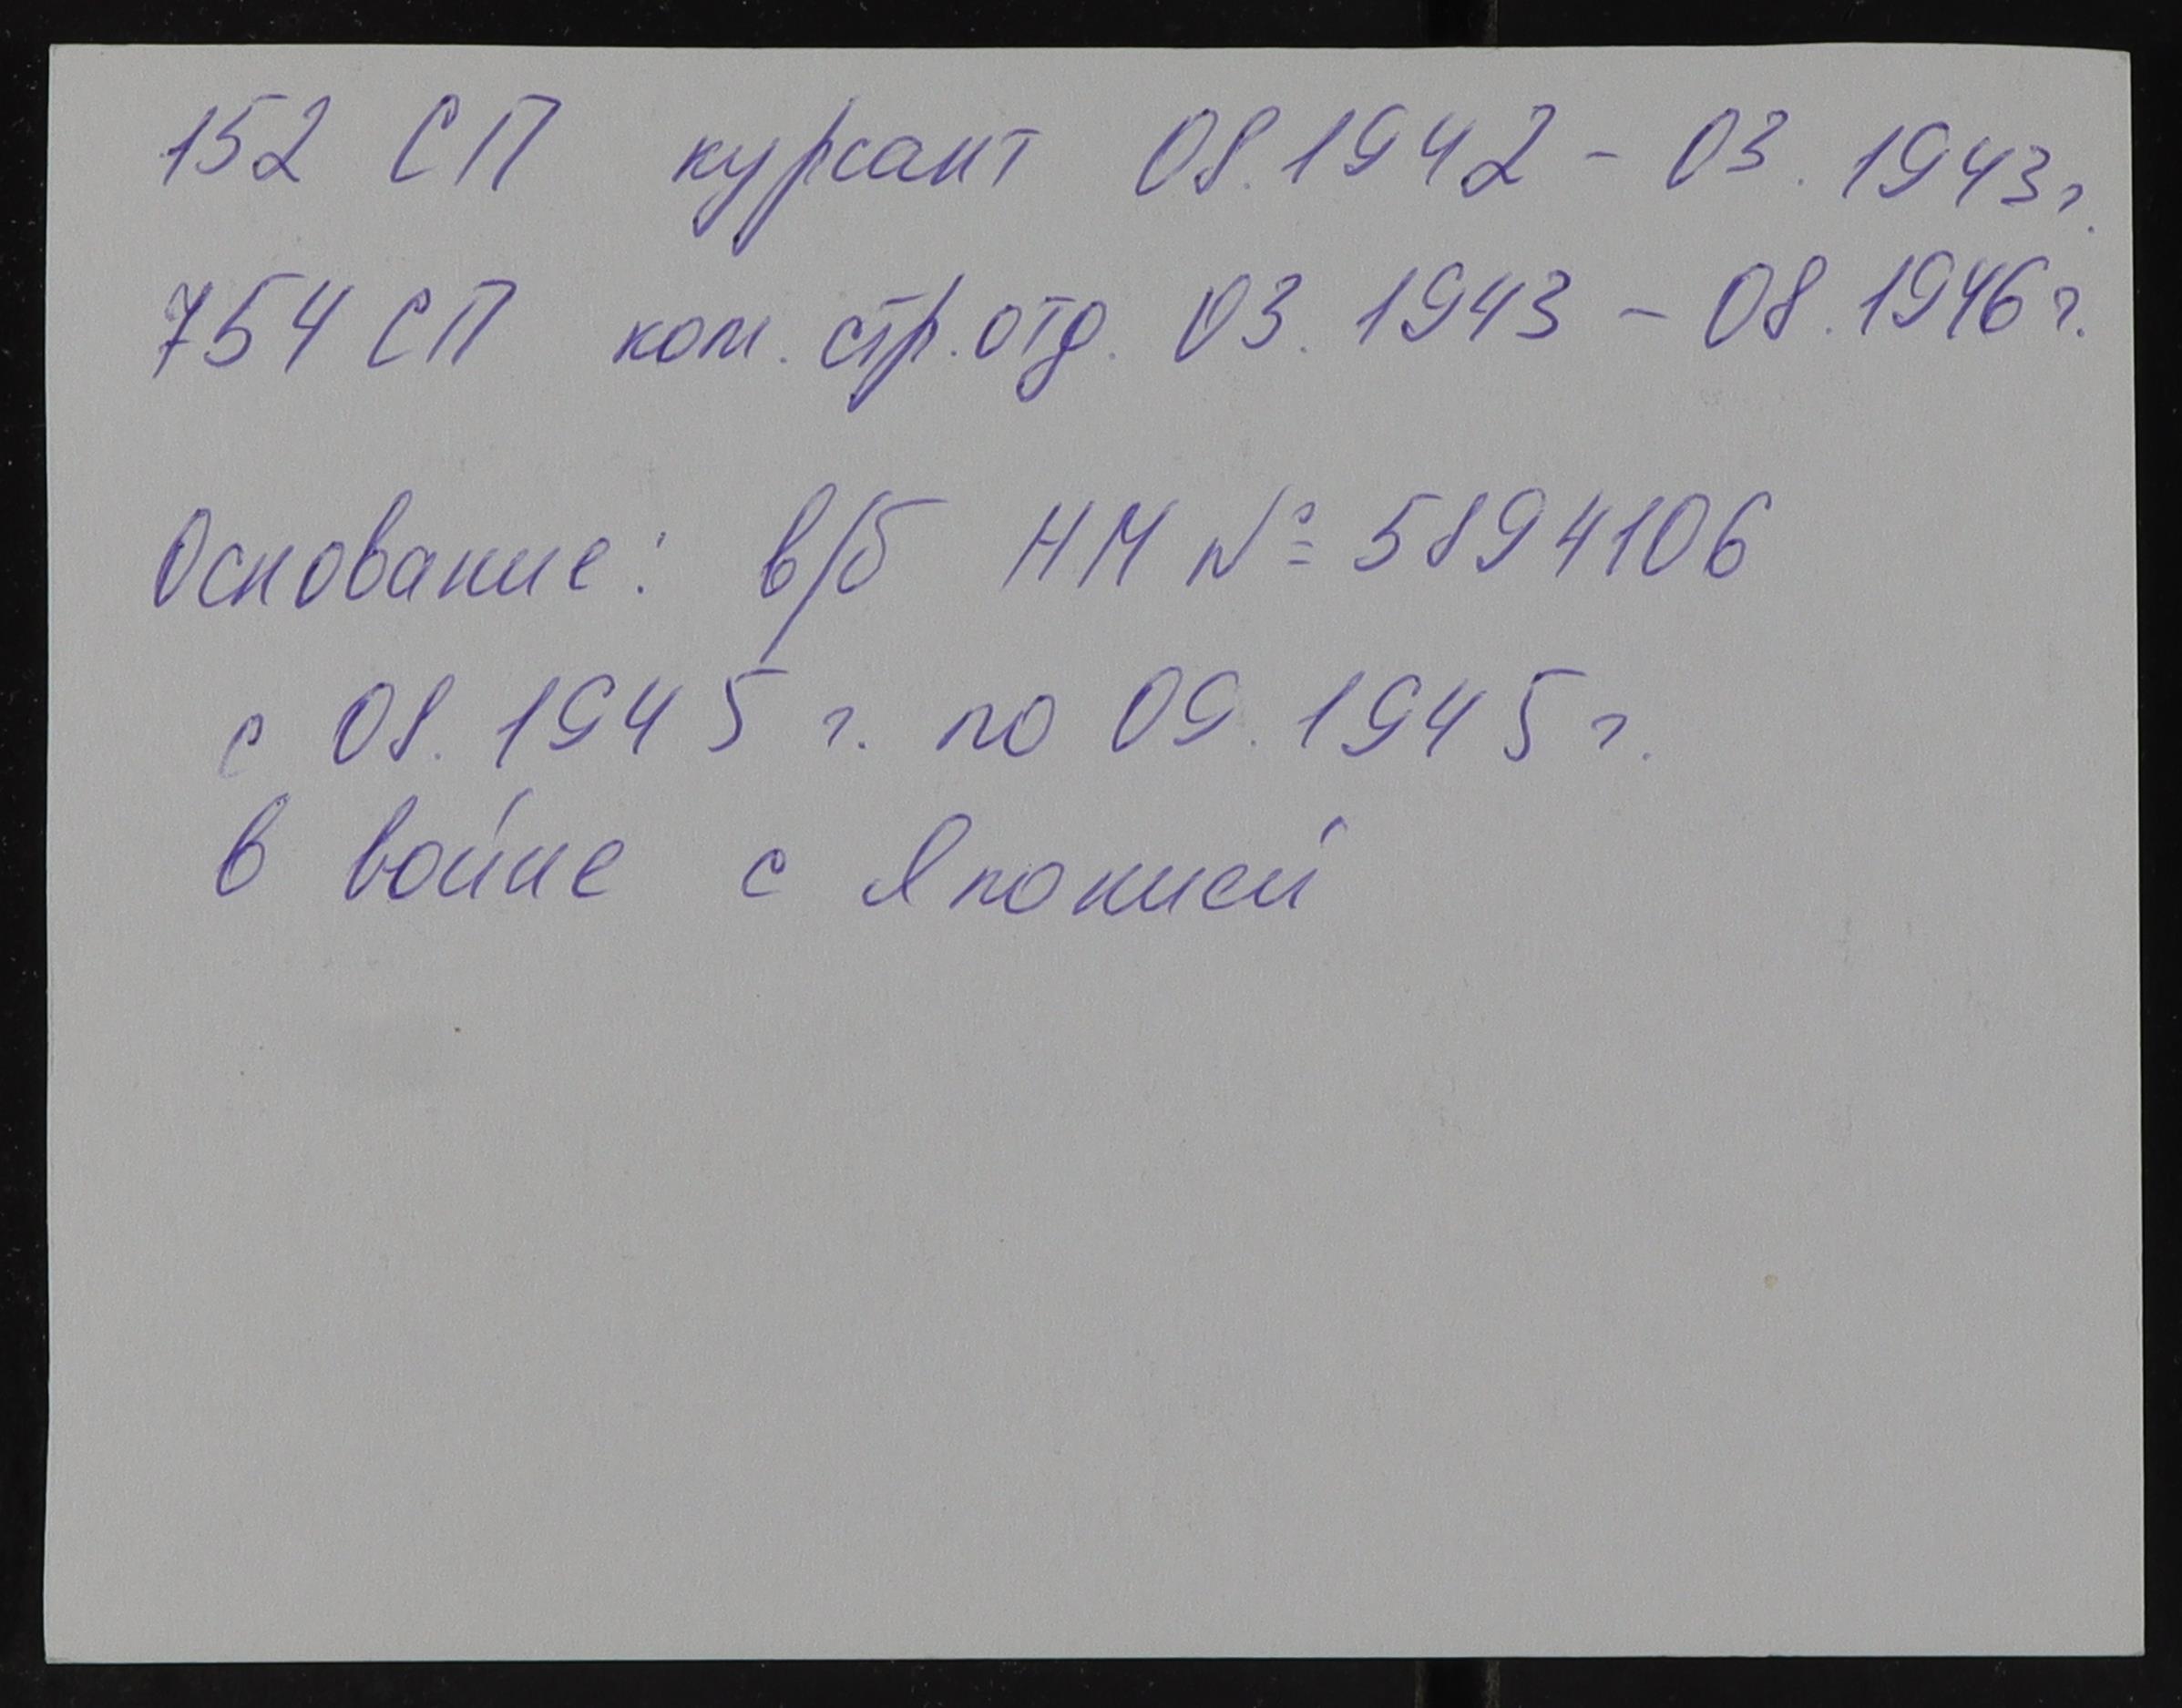 152 СП курсант 08.1942 - 03.1943г.
754 СП ком. стр. отд. 03.1943 - 08.1946г.
Основание: в/б НМ № 5894106
с 08.1945 г. по 09.1945 г.
в войне с Японией